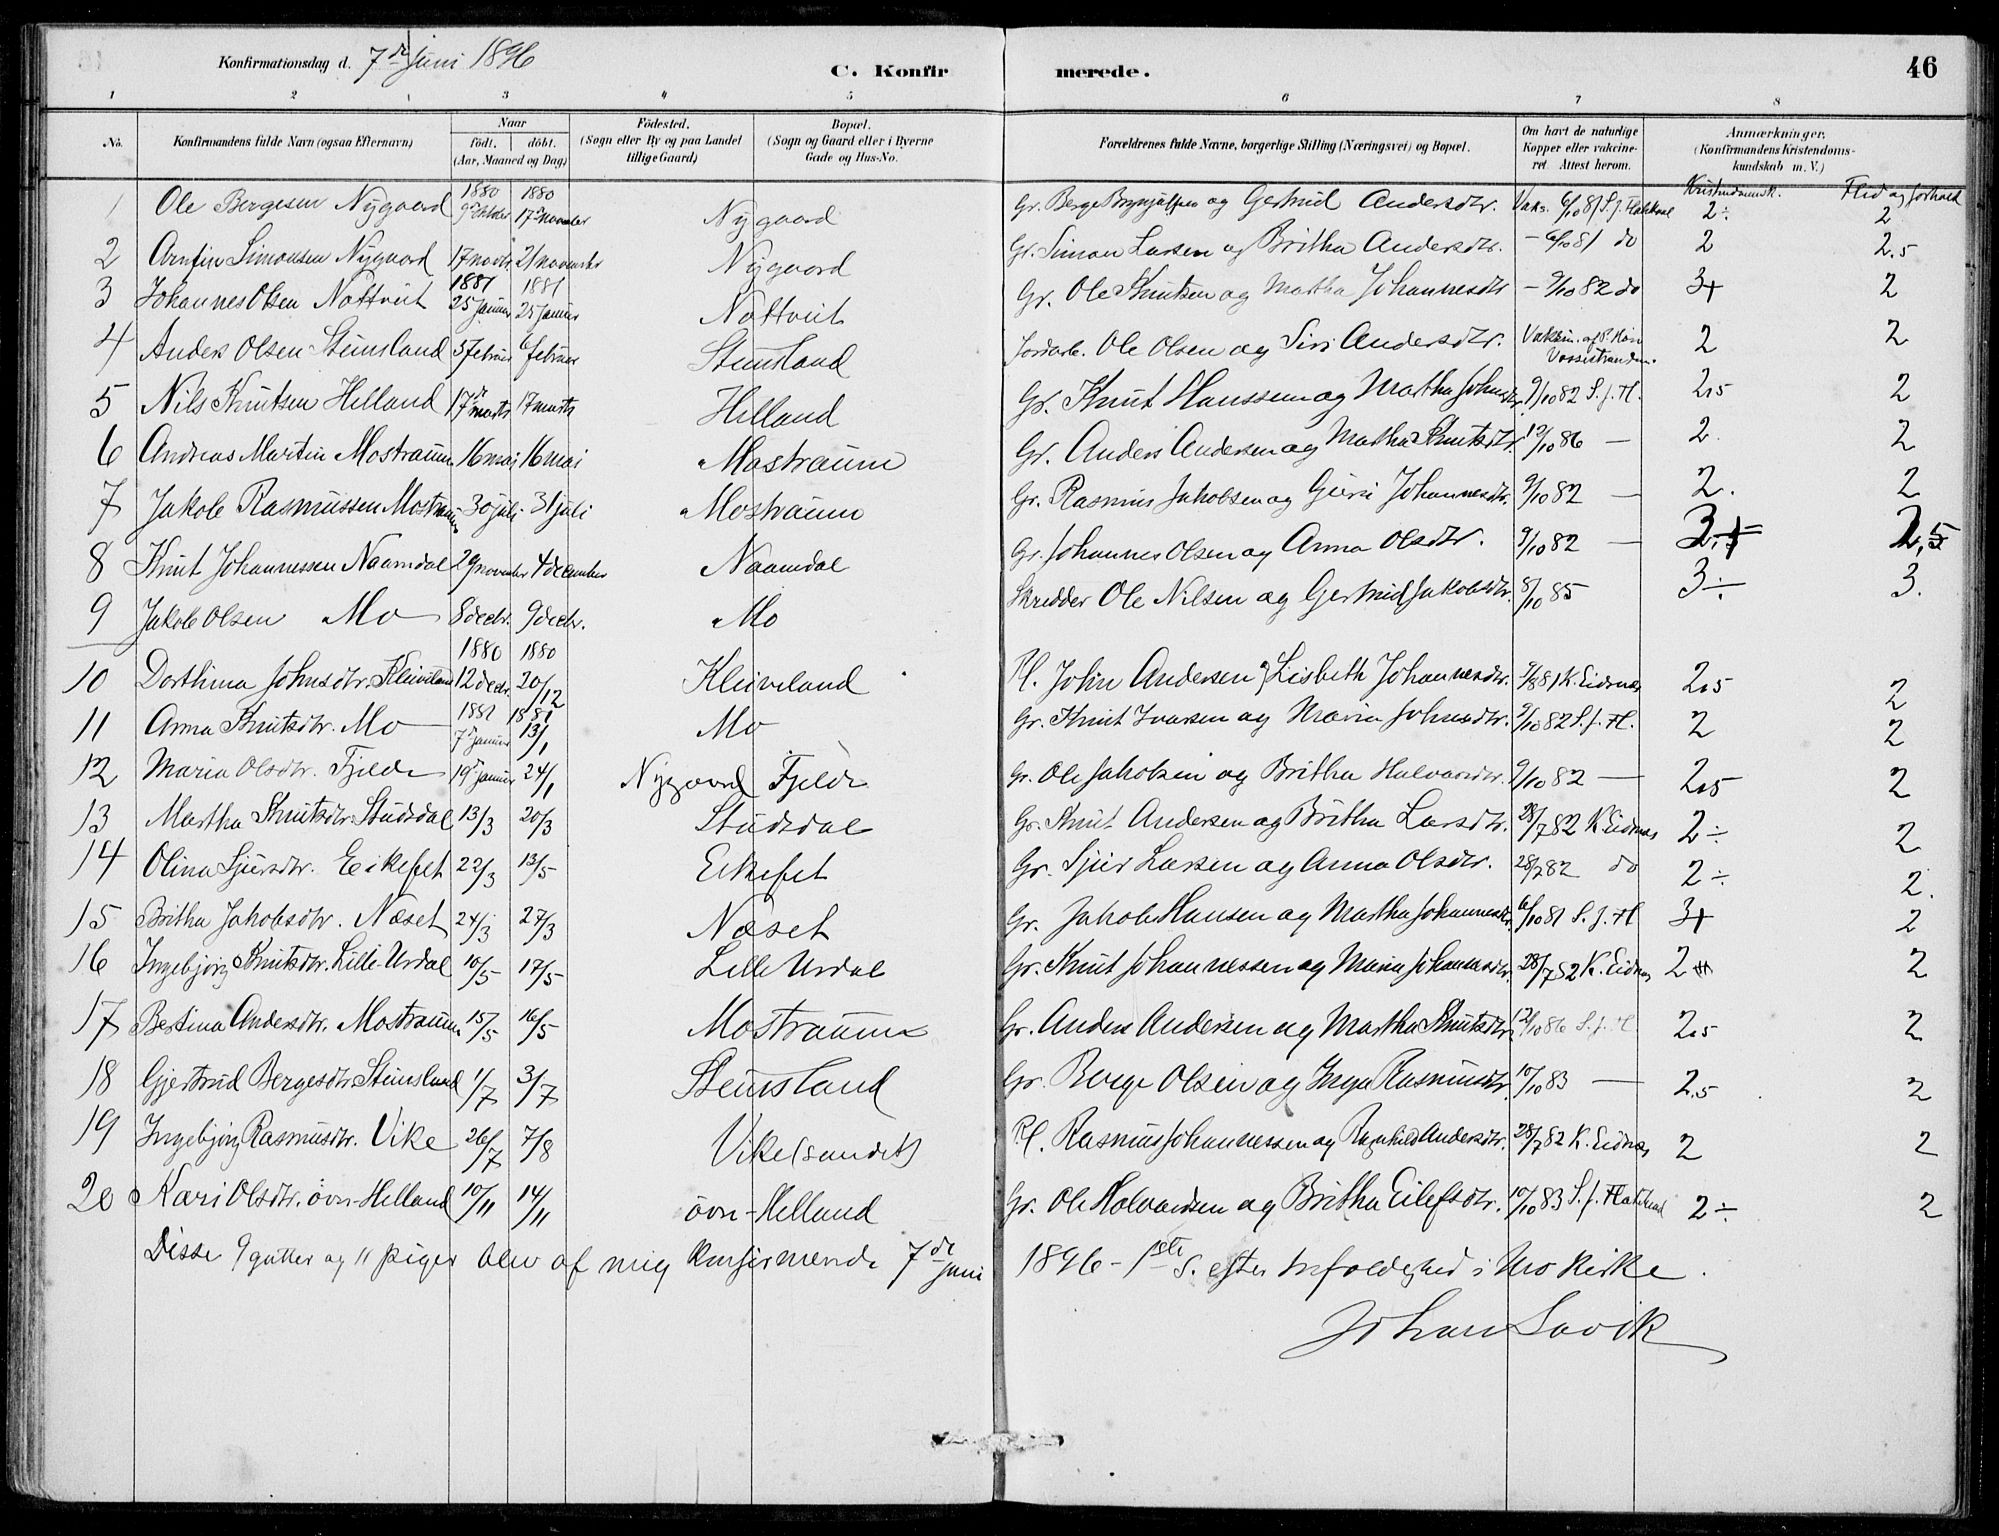 Konfirmationsdag d. 7de Juni 1896
C. Konfirmerede.
46
1 2 3 4 5 6 7 8
No. Konfirmandens fulde Navn (ogsaa Efternavn) Naar födt. döbt. (Aar, Maaned og Dag) Födested. (Sogn eller By og paa Landet tillige Gaard) Bopæl. (Sogn og Gaard eller i Byerne Gade og Hus-No. Forældrenes fulde Navne, borgerlige Stilling (Næringsvei) og Bopæl. Om havt de naturlige Kopper eller vakcineret. Attest herom. Anmærkninger, (Konfirmandens Kristendomskundskab m. V.)
Kristendomsk. Flid og forhold
1 Ole Bergesen Nygaard 1880 9de oktober 1880 17de november Nygaard Gr. Berge Brynjulfsen og Gertrud Andersdtr. Vaks. 6/10 81 S. J. Flatekval 2÷ 2
2 Arnfin Simonsen Nygaard 17 novbr 21 november Nygaard Gr. Simon Larsen og Britha Andersdtr. – 6/10 81 do 2 2.5
3 Johannes Olsen Nottveit 1881 25 januar 1881 25 januar Nottveit Gr. Ole Knutsen og Martha Johannesdtr – 9/10 82 do 3+ 2
4 Anders Olsen Steinsland 5 februar 6 februar Steinsland Jordarb. Ole Olsen og Siri Andersdtr. Vaksin. af Vossestranden 2 2
5 Nils Knutsen Helland 17de marts 17 marts Helland Gr. Knut Hanssen og Martha Johnsdtr 9/10 82 S. J. Fl. 2,5 2
6 Andreas Martin Mostraum 16 mai 16 mai Mostraum Gr. Anders Andersen og Martha Knutsdtr. 12/10 86 — 2. 2
7 Jakob Rasmussen Mostraum 30 juli 31 juli Mostraum Gr. Rasmus Jakobsen og Guri Johannesdtr. 9/10 82 — 2. 2
8 Knut Johannessen Naamdal 29 november 4 december Naamdal Gr. Johannes Olsen og Anna Olsdtr. 9/10 82 — 2,5
9 Jakob Olsen Mo 8 decbr. 9 decbr. Mo Skredder Ole Nilsen og Gertrud Jakobsdtr. 8/10 85 3÷ 3.
10 Dorthina Johnsdtr. Kleiveland 1880 12 decbr. 1880 20/12 Kleiveland Pl. John Andersen og Lisbeth Johannesdtr. 9/8 81 K. Eidsnes 2,5 2
11 Anna Knutsdtr. Mo 1881 7de januar 1881 13/1 Mo Gr. Knut Ivarsen og Maria Johnsdtr. 9/10 82 S. J. Fl. 2 2
12 Maria Olsdtr. Fjelde 19de januar 24/1 Nygaard Fjelde Gr. Ole Jakobsen og Britha Halvorsdtr. 9/10 82 — 2,5 2
13 Martha Knutsdtr. Studsdal 13/3 20/3 Studsdal Gr. Knut Andersen og Britha Larsdtr. 28/7 82 K. Eidnes 2÷ 2
14 Olina Sjursdtr. Eeikefet 22/3 13/5 Eikefet Gr. Sjur Larsen og Anna Olsdtr. 28/7 82 do 2÷ 2.
15 Britha Jakobsdtr. Næset 24/3 27/3 Næset Gr. Jakob Hansen og Martha Johannesdtr. 6/10 81 S. J. Fl 3+ 2
16 Ingebjørg Knutsdtr. Lille-Urdal 10/5 17/5 Lille Urdal Gr. Knut Johannessen og Maria Johannesdtr. 28/7 82 K. Eidnes 2 2
17 Bertina Andersdtr. Mostraum 15/5 16/5 Mostraum Gr. Anders Andersen og Martha Knutsdtr. 12/10 86 S. J. Fl. 2.5 2
18 Gjertrud Bergesdtr. Steinsland 1/7 3/7 Steinsland Gr. Berge Olsen og Inga Rasmusdtr. 10/10 83 — 2.5 2
19 Ingebjørg Rasmusdtr. Vike 26/7 7/8 Vike (sundet) Pl. Rasmus Johannessen og Ragnhild Andersdtr. 28/7 82 K. Eidnes 2 2
20 Kari Olsdtr. øvr-Helland 10/11 14/11 øvr-Helland Gr. Ole Halvardsen og Britha Eilefsdtr. 10/10 83 S. J. Flatekval 2÷ 2
Disse 9 gutter og 11 piger blev af mig konfirmerede 7de juni 1896 – 1ste S. efter trefoldighed i Mo Kirke.
Johan Lavik